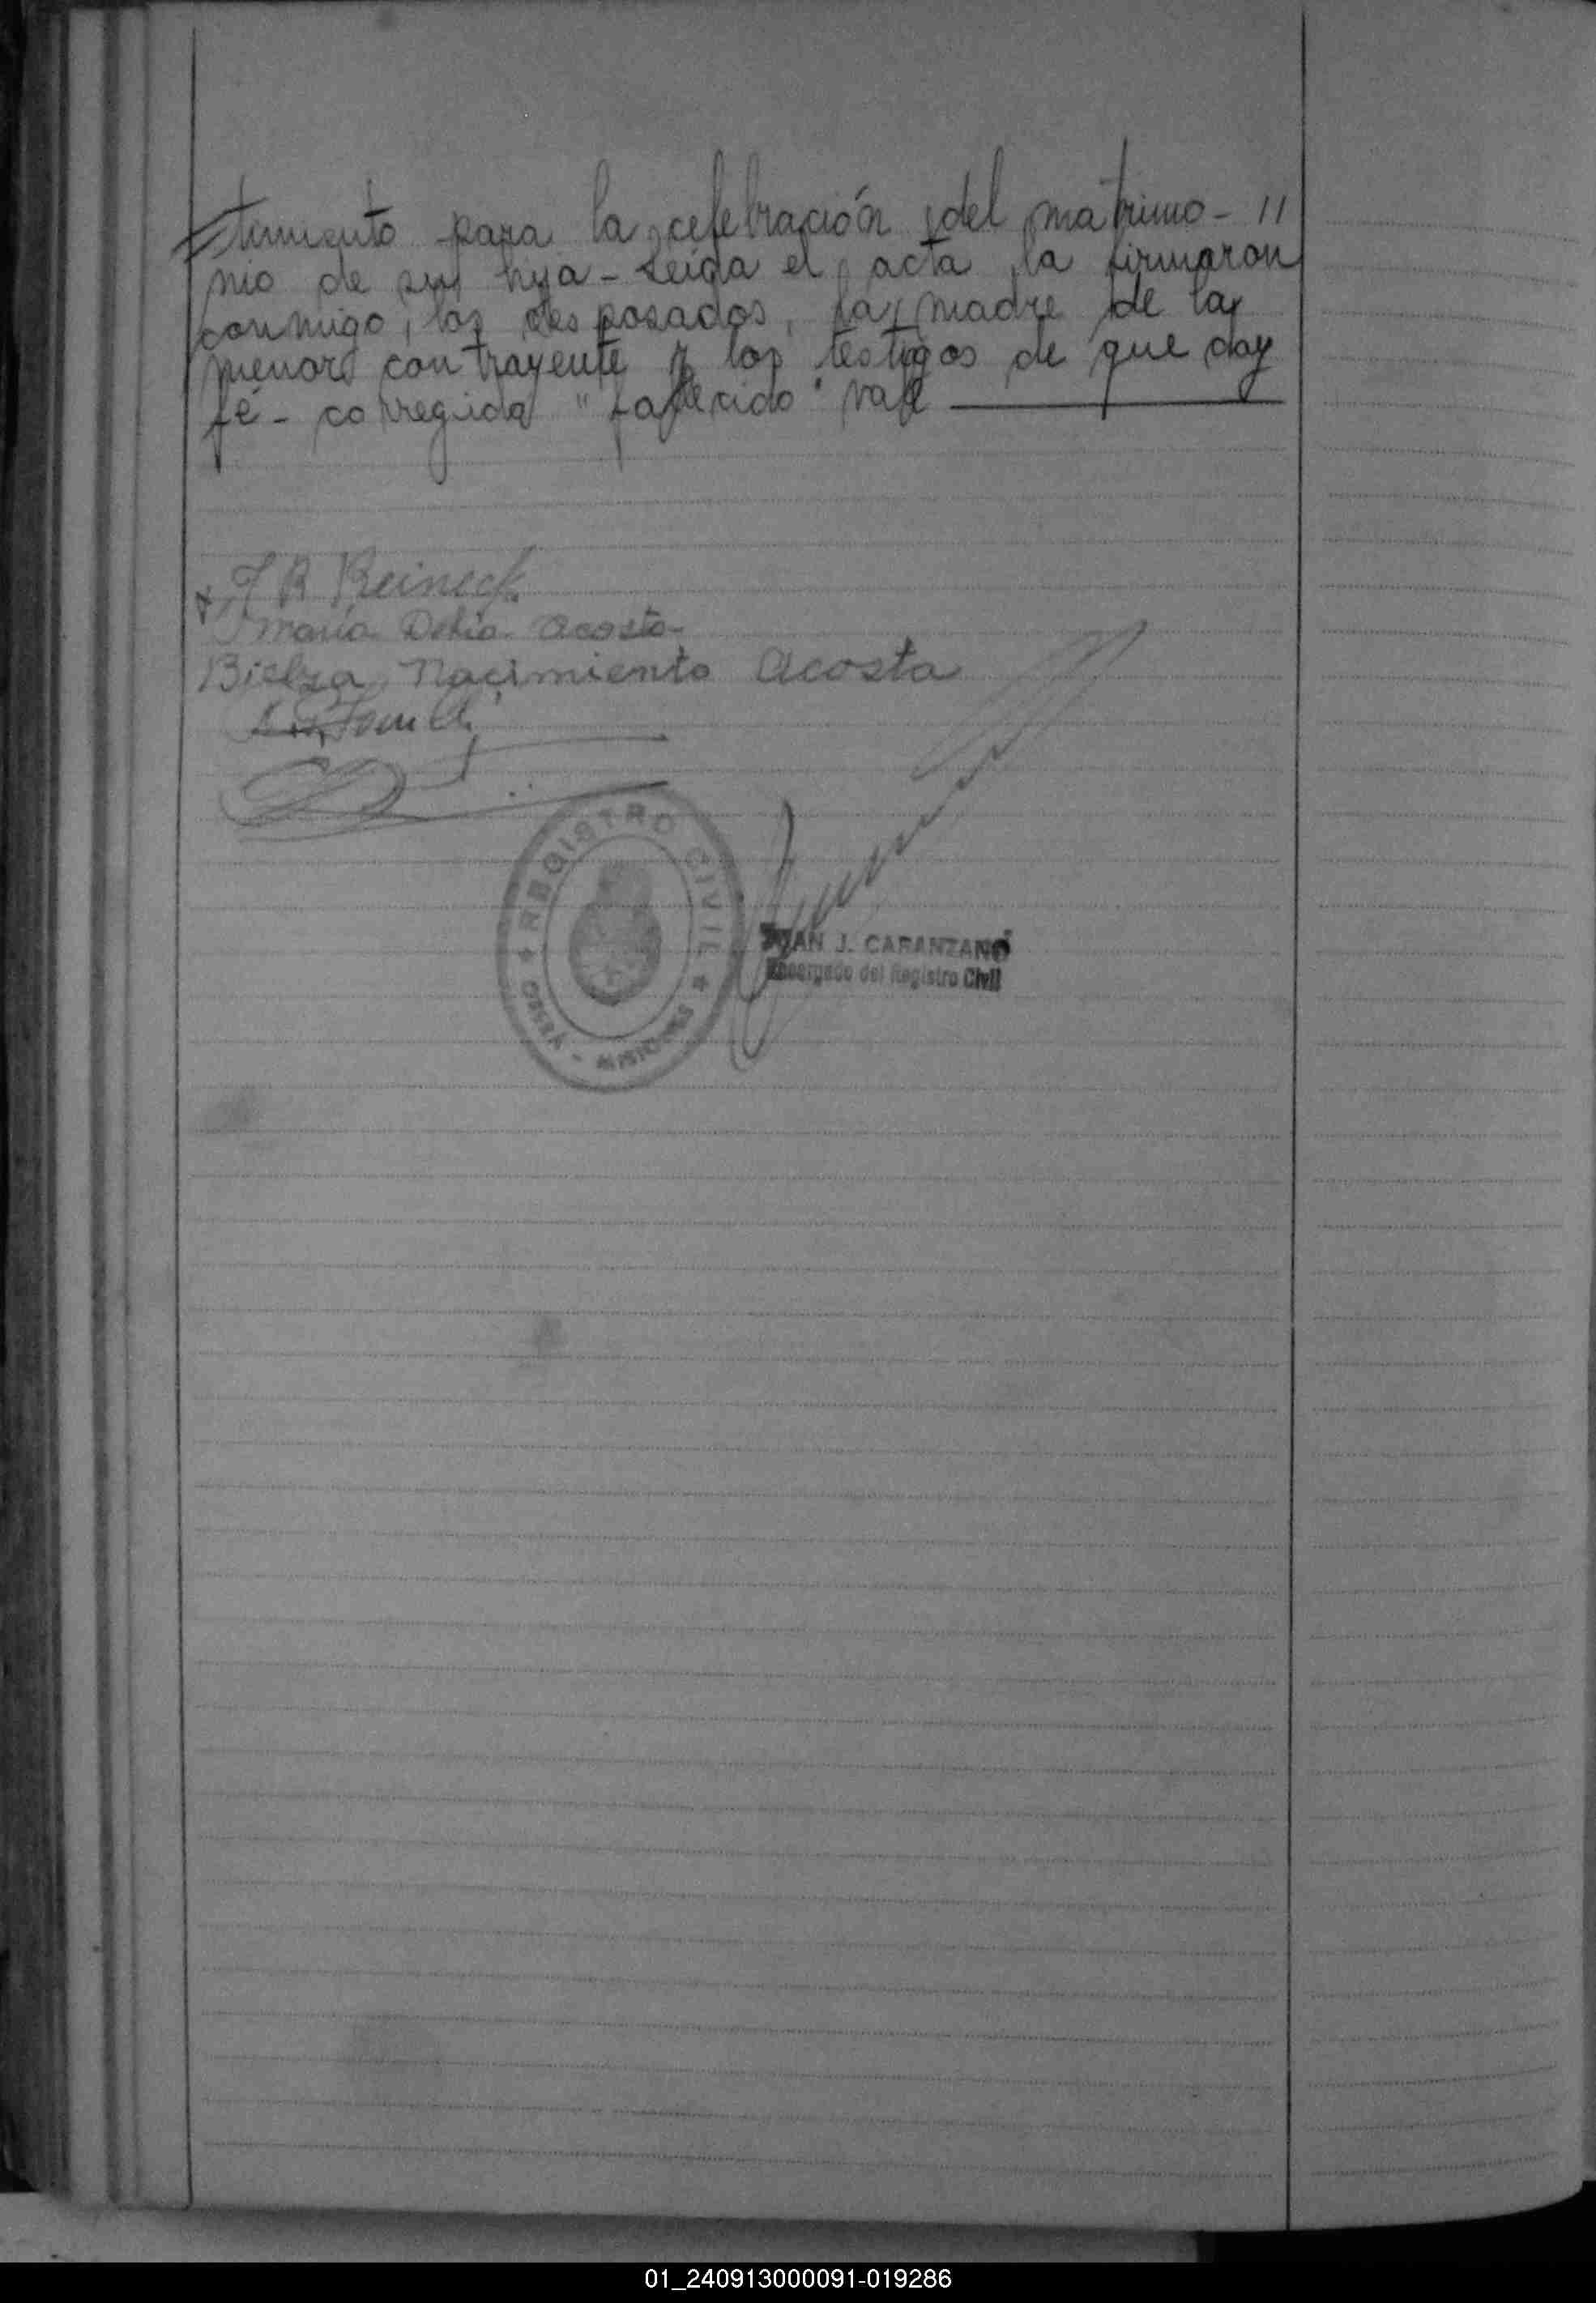 timiento para la celebración del matrimo- //
nio de su hija - Leida el acta la firmaron
conmigo, los desposados, la madre de la
menor contrayente y los testigos de que doy
fé - corregida "fallecido" vale
J R Reineck
Maria Delia Acosta
Bielza Nacimiento Acosta
REGISTRO CIVIL
OBERÁ - MISIONES
JUAN J. CARANZANO
Encargado del Registro Civil
01_240913000091-019286